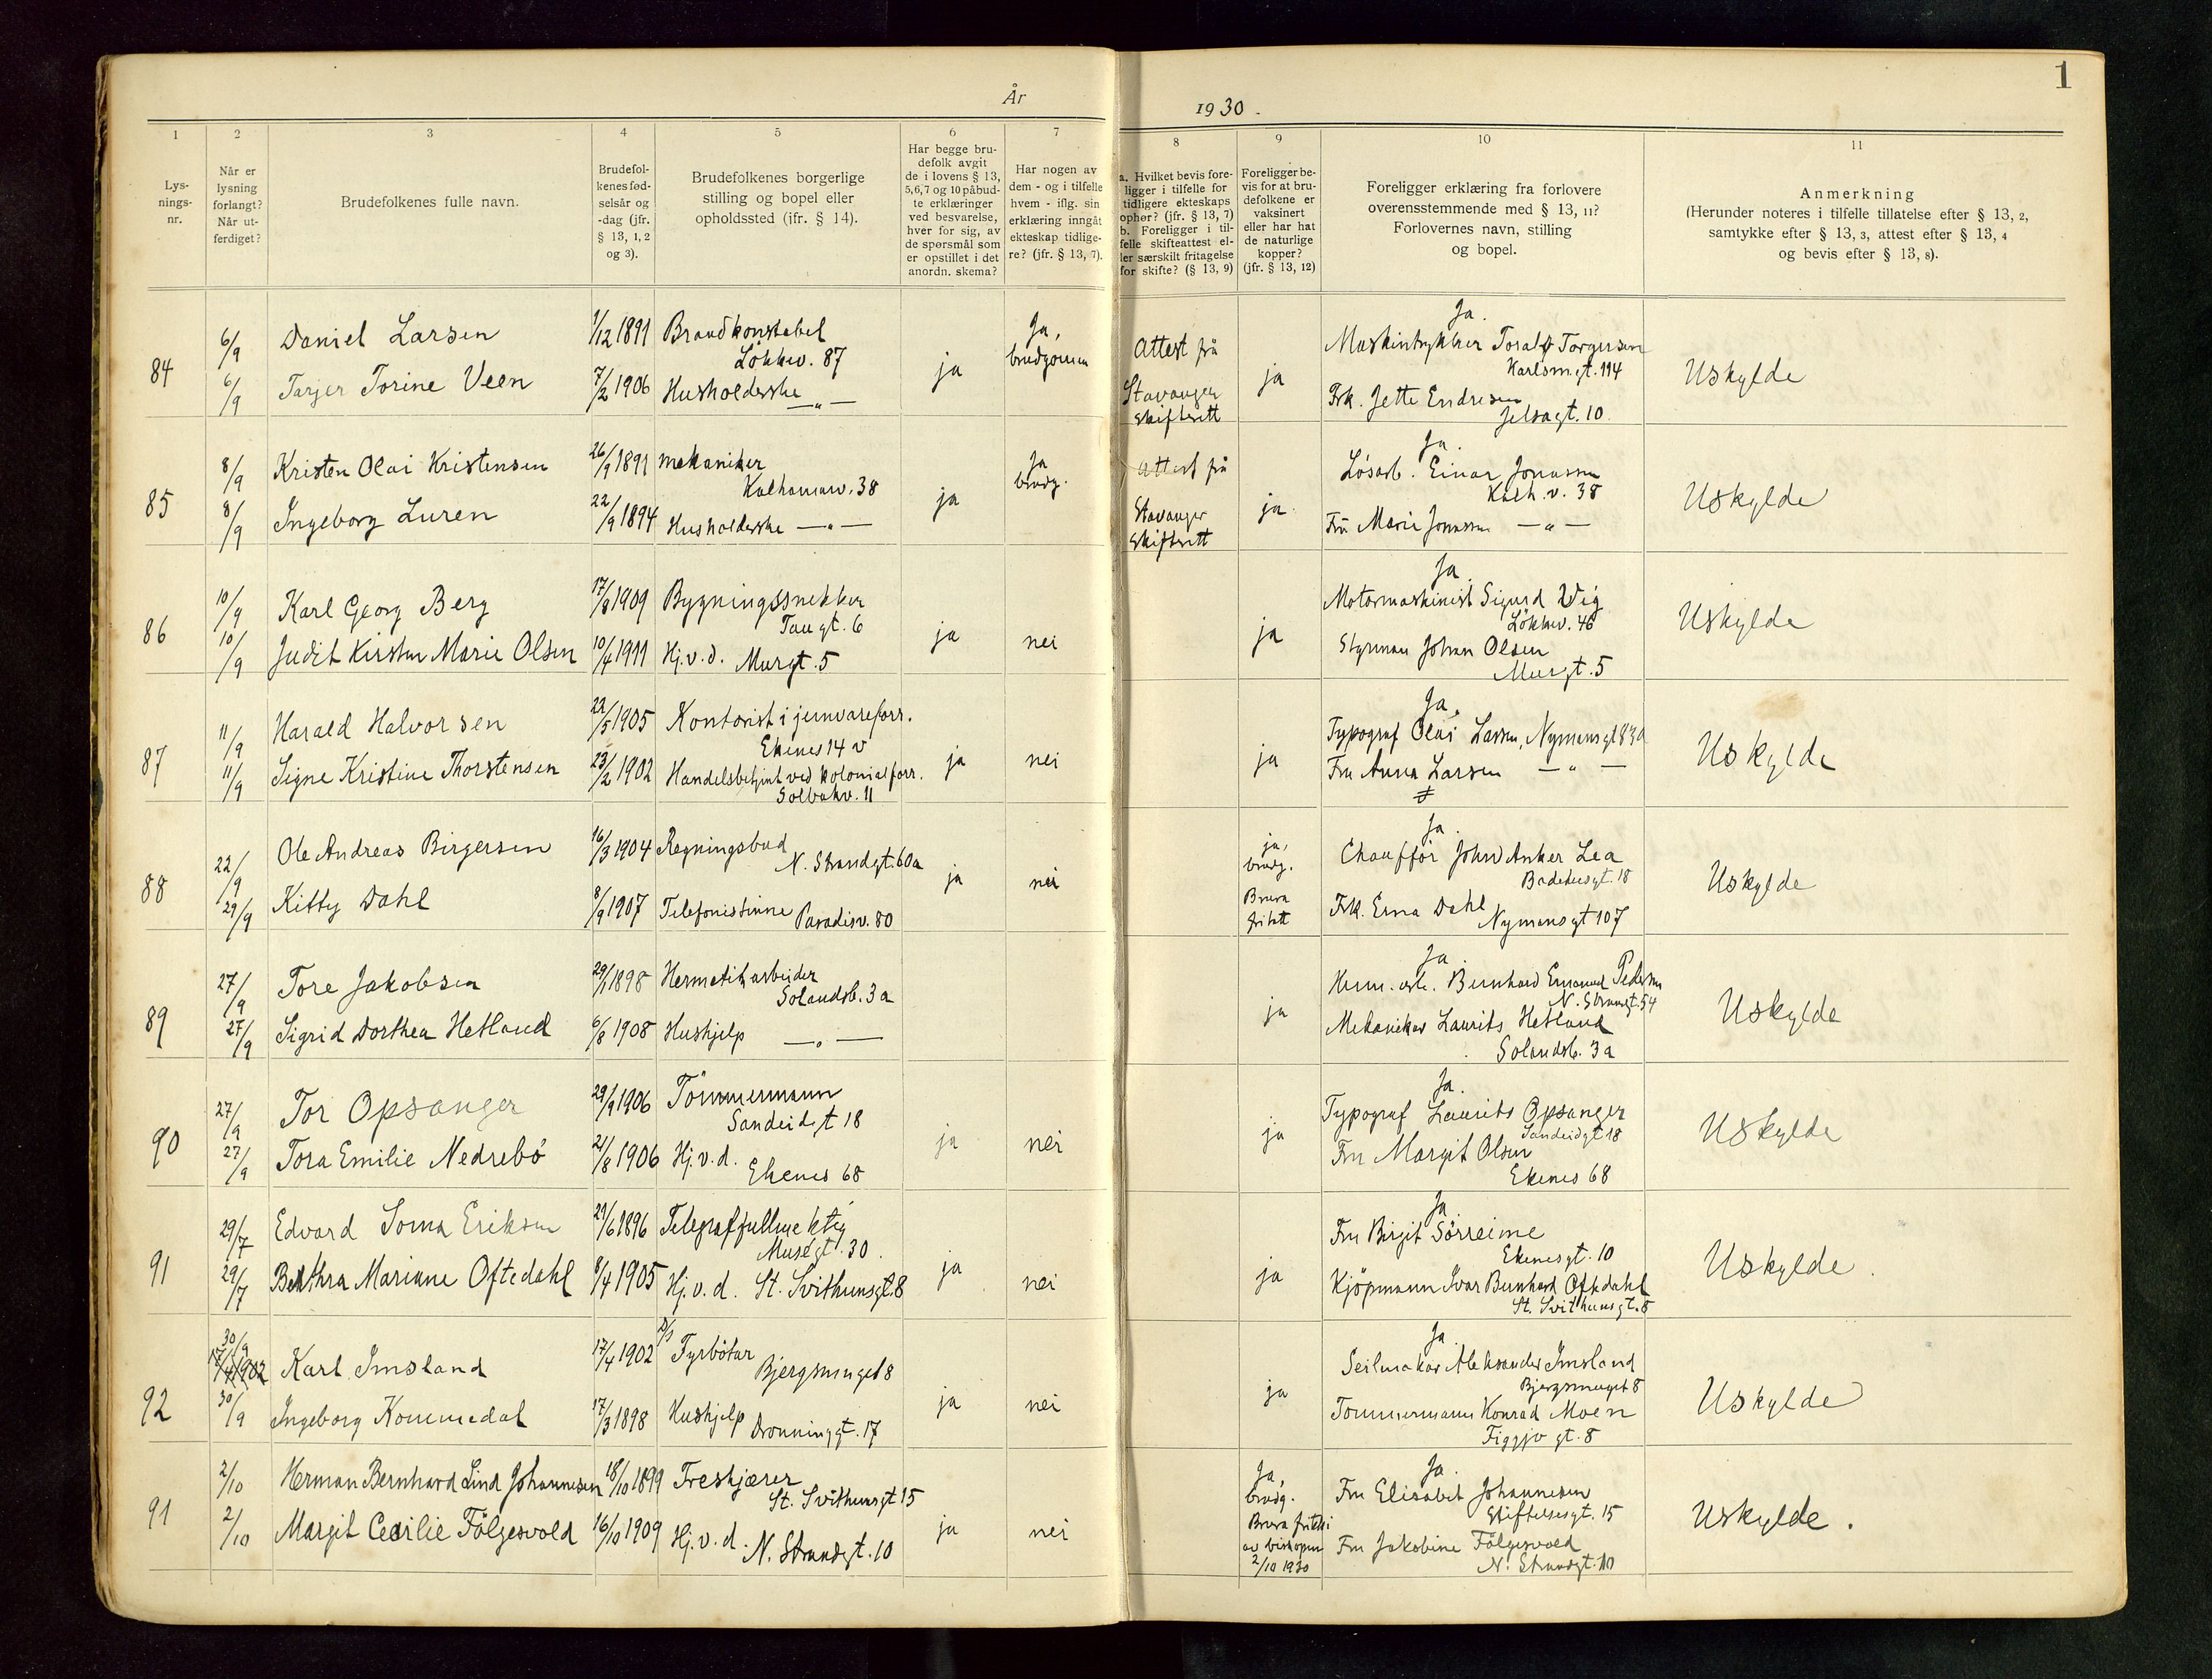 År
1930.
1
1
2
3
4
5
6
7
8
9
10
11
Lys-
nings-
nr.
Når er
lysning
forlangt?
Når ut-
ferdiget?
Brudefolkenes fulle navn.
Brudefol-
kenes fød-
selsår og
-dag (jfr.
§ 13, 1, 2
og 3).
Brudefolkenes borgerlige
stilling og bopel eller
opholdssted (ifr. § 14).
Har begge bru-
defolk avgit
de i lovens § 13,
5, 6, 7 og 10 påbud-
te erklæringer
ved besvarelse,
hver for sig, av
de spørsmål som
er opstillet i det
anordn. skema?
Har nogen av
dem - og i tilfelle
hvem - iflg. sin
erklæring inngåt
ekteskap tidlige-
re? (jfr. § 13, 7).
a. Hvilket bevis fore-
ligger i tilfelle for
tidligere ekteskaps
ophør? (jfr. § 13, 7)
b. Foreligger i til-
felle skifteattest el-
ler særskilt fritagelse
for skifte? (§ 13, 9)
Foreligger be-
vis for at bru-
defolkene er
vaksinert
eller har hat
de naturlige
kopper?
(jfr. § 13, 12)
Foreligger erklæring fra forlovere
overensstemmende med § 13, 11?
Forlovernes navn, stilling
og bopel.
Anmerkning
(Herunder noteres i tilfelle tillatelse efter § 13, 2,
samtykke efter § 13, 3, attest efter § 13, 4
og bevis efter § 13, 8).
84
6/9
6/9
Daniel Larsen
Tarjer Torine Veen
1/12 1891
7/2 1906
Brandkonstabel
Lökkev. 87
Husholderske
—„—
ja
Ja,
brudgomen
Attest frå
Stavanger
skifterett
ja
Ja.
Maskintrykker Toralf Torgersen
Karlsm.gt. 114
Frk. Jette Endresen
Jelsagt. 10.
Uskylde
85
8/9
8/9
Kristen Olai Kristensen
Ingeborg Luren
26/9 1891
22/9 1894
mekaniker
Kalhamarv. 38
Husholderske —„—
ja
Ja
brudg.
attest frå
Stavanger
skifterett
ja.
Ja.
Lösarb. Einar Jonassen
Kalh.v. 38
Fru Marie Jonassen —„—
Uskylde
86
10/9
10/9
Karl Georg Berg
Judit Kirsten Marie Olsen
17/8 1909
10/4 1911
Bygningssnekker
Taugt. 6
Hj.v.d. Murgt. 5
ja
nei
ja
Ja.
Motormaskinist Sigurd Vig
Lökkev. 46
Styrman Johan Olsen
Murgt. 5
Uskylde
87
11/9
11/9
Harald Halvorsen
Signe Kristine Thorstensen
22/5 1905
23/2 1902
Kontorist i jernvareforr.
Ekenes 14 v
Handelsbetjent ved kolonialforr.
Solbakv. 11
ja
nei
ja
Ja.
Typograf Olai Larsen, Nymansgt 83a
Fru Anna Larsen —„—
Uskylde
88
22/9
29/9
Ole Andreas Birgersen
Kitty Dahl
16/3 1904
8/9 1907
Regningsbud
N. Strandgt. 60a
Telefonistinne
Paradisv. 80
ja
nei
ja,
brudg.
Brura
fritatt
Ja.
Chaufför John Anker Lea
Badehusgt. 18
Frk. Erna Dahl
Nymansgt 107
Uskylde
89
27/9
27/9
Tore Jakobsen
Sigrid Dorthea Hetland
29/1 1898
6/8 1908
Hermetikarbeider
Solandsb. 3a
Hushjelp —„—
ja
Ja.
Herm.arb. Bernhard Emanuel Pedersen
N. Strandgt. 54
Mekaniker Laurits Hetland
Solandsb. 3a
Uskylde
90
27/9
27/9
Tor Opsanger
Tora Emilie Nedrebö
29/9 1906
21/8 1906
Tömmermann
Sandeidgt 18
Hj.v.d.
Ekenes 68
ja
nei
ja
Ja.
Typograf Laurits Opsanger
Sandeidgt 18
Fru Margit Olsen
Ekenes 68
Uskylde
91
29/7
29/7
Edvard Soma Eriksen
Berthra Mariane Oftedahl
21/6 1896
8/4 1905
Telegraffullmektig
Muségt. 30.
Hj.v.d. St. Svithunsgt. 8
ja
nei
ja
Ja.
Fru Birgit Sörreime
Ekenesgt. 10
Kjöpmann Ivar Bernhard Oftedahl
St. Svithunsgt. 8
Uskylde.
92
30/9
17/4 1902
30/9
Karl Imsland
Ingeborg Kommedal
17/4 1902
17/3 1898
Fyrbötar
Bjergsmuget 8
Hushjelp
Dronninggt. 17
ja
nei
ja
Ja.
Seilmakar Aleksander Imsland
Bjergsmuget 8
Tömmermann Konrad Moen
Figgjo gt. 8
Uskylde
91
2/10
2/10
Herman Bernhard Lind Johannesen
Margit Cecilie Fölgesvold
18/10 1899
16/10 1909
Treskjærer
St. Svithunsgt 15
Hj.v.d. N. Strandgt. 10
ja
nei
Ja,
brudg.
Brura fritatt
av biskopen
2/10 1930
Ja.
Fru Elisabet Johannesen
Stiftelsesgt. 15
Fru Jakobine Fölgesvold
N. Strandgt. 10
Uskylde.